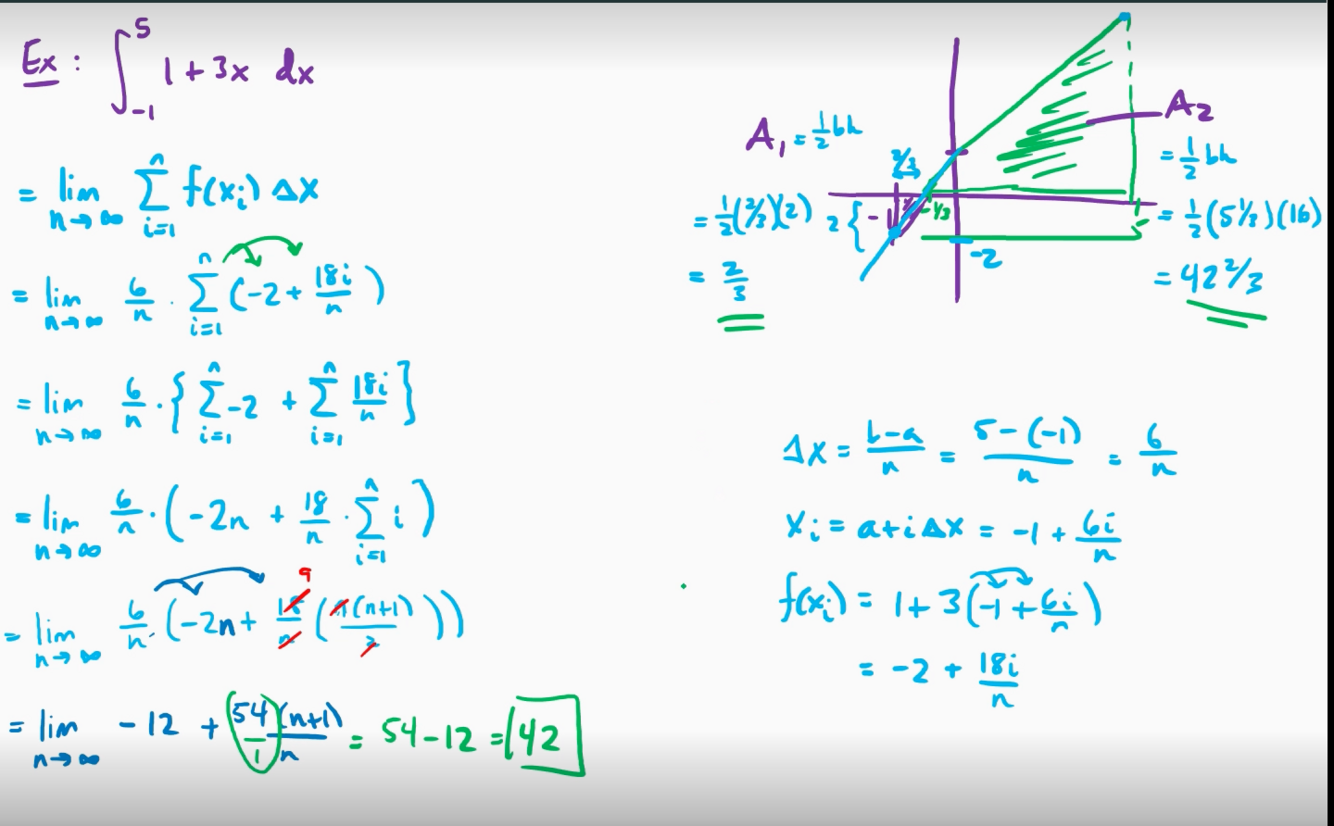 Ex: ∫_{-1}^{5} 1+3x dx
= lim_{n→∞} Σ_{i=1}^{n} f(x_i) Δx
= lim_{n→∞} 6/n · Σ_{i=1}^{n} (-2 + 18i/n)
= lim_{n→∞} 6/n · { Σ_{i=1}^{n} -2 + Σ_{i=1}^{n} 18i/n ]
= lim_{n→∞} 6/n · (-2n + 18/n · Σ_{i=1}^{n} i)
9
= lim_{n→∞} 6/n · (-2n + 18/n (n(n+1)/2))
= lim_{n→∞} -12 + 54/1 (n+1)/n = 54-12 = 42
A₁ = ½bh
= ½(2/3)(2)
= 2/3
2/3
2 {
-1
-1/3
-2
5
A₂
= ½bh
= ½(5⅓)(16)
= 42 2/3
Δx = b-a/n = 5-(-1)/n = 6/n
x_i = a+iΔx = -1 + 6i/n
f(x_i) = 1+3(-1+6i/n)
= -2 + 18i/n